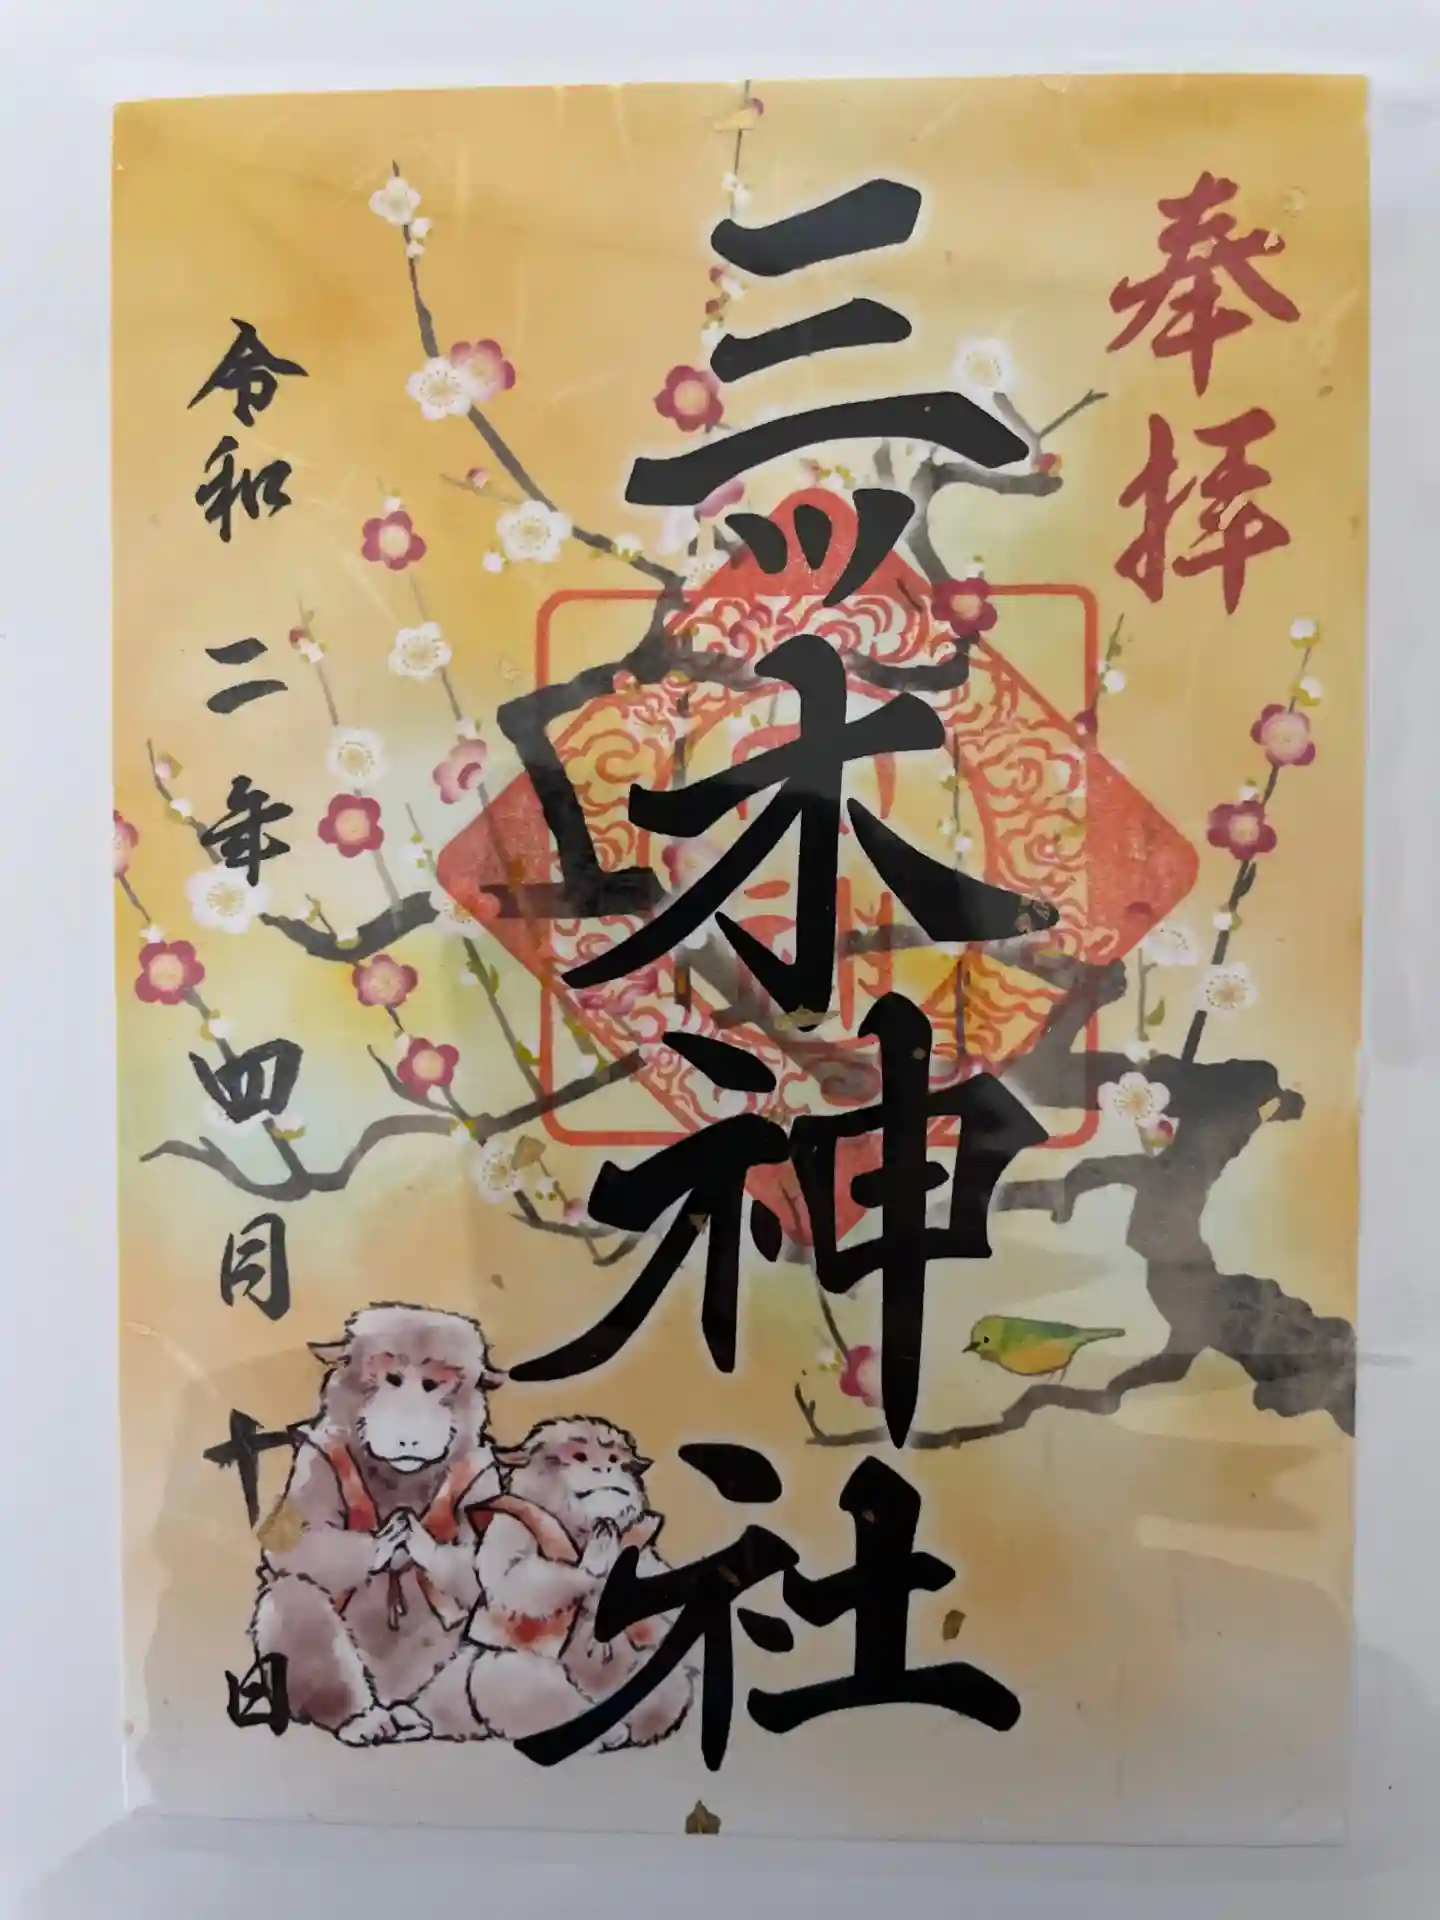 奉拝
三ツ木神社
令和二年四月十日